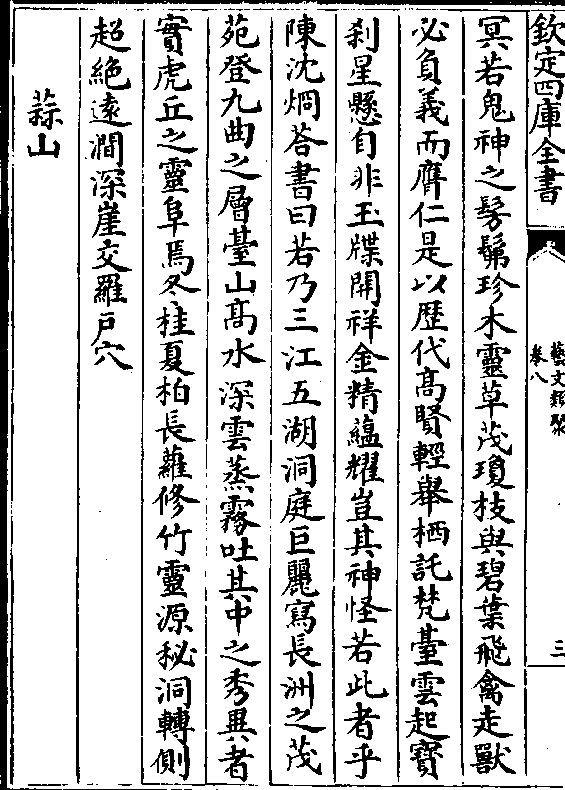 欽定四庫全書
藝文類聚
卷八
三
冥若鬼神之髣髴珍木靈草茂瓊枝與碧葉飛禽走獸
必負義而膺仁是以歴代髙賢輕舉栖託梵臺雲起寳
刹星懸自非玉牒開祥金精藴耀豈其神怪若此者乎
陳沈烱荅書曰若乃三江五湖洞庭巨麗寫長洲之茂
苑登九曲之層臺山髙水深雲蒸霧吐其中之秀異者
實虎丘之靈阜焉冬桂夏柏長蘿修竹靈源秘洞轉側
超絶逺澗深崖交羅户穴
蒜山